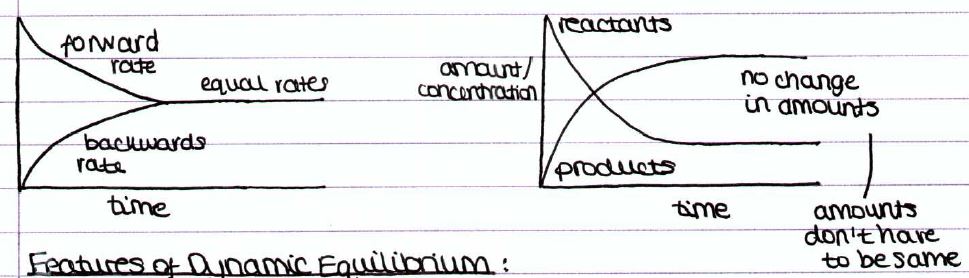 forward
rate
equal rates
backwards
rate
time
reactants
amount/
concentration
no change
in amounts
products
time
amounts
don't have
to be same
Features of Dynamic Equilibrium: